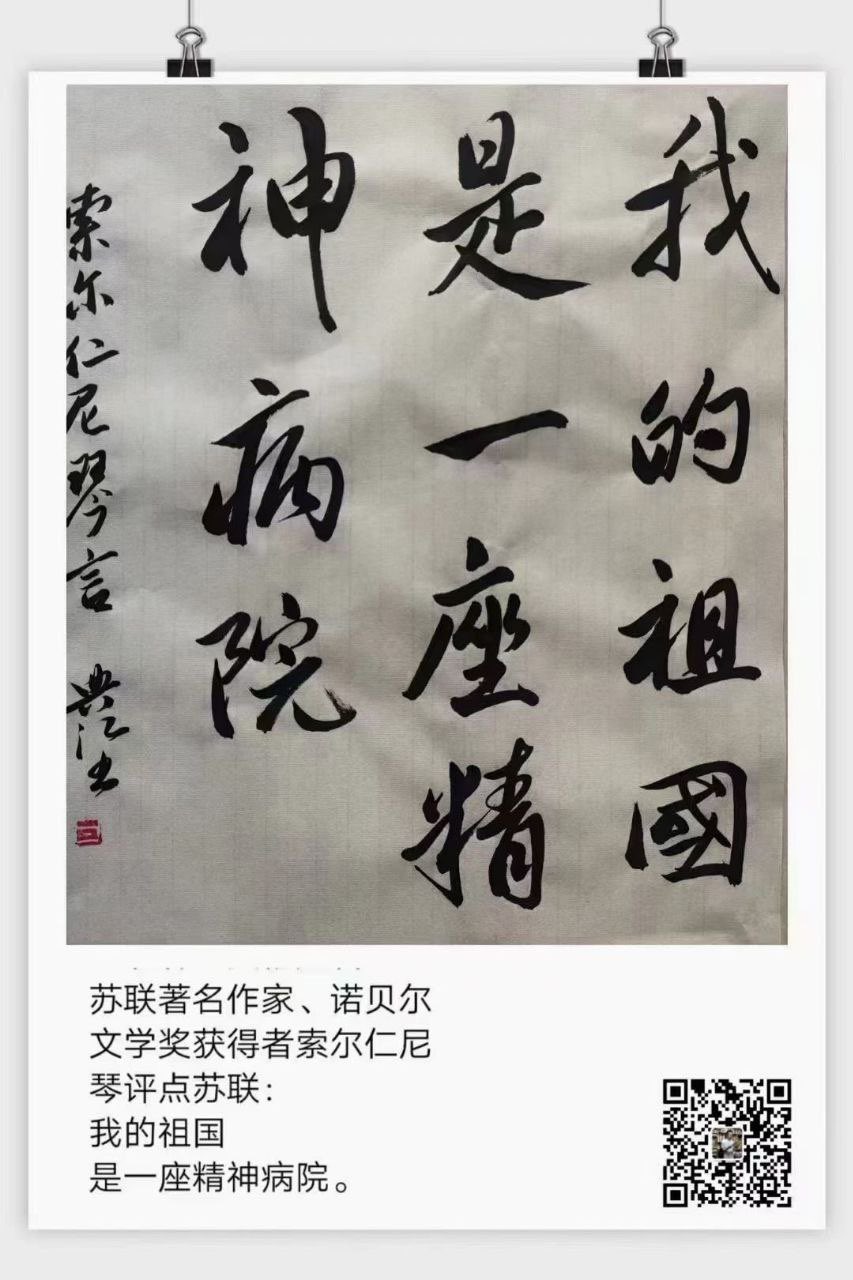 我的祖國
是一座精
神病院
索尔仁尼琴言 典江书
苏联著名作家、诺贝尔
文学奖获得者索尔仁尼
琴评点苏联：
我的祖国
是一座精神病院。